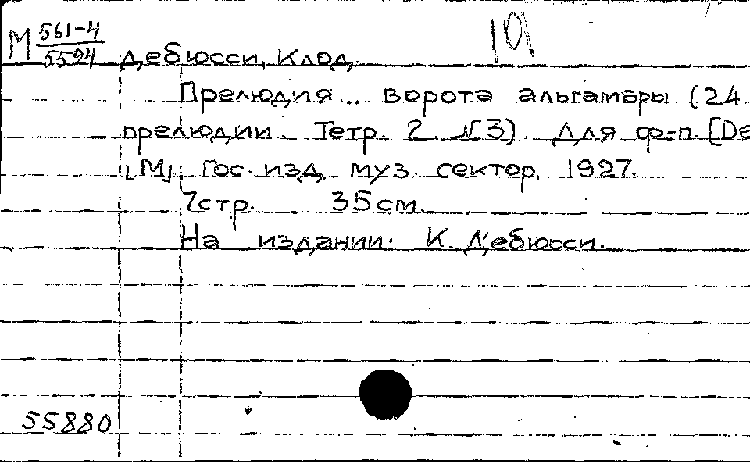 М 561-4
5594
Дебюсси, Клод,
Прелюдия... Ворота альгамбры (24
прелюдии. Тетр. 2 №3). Для ф-п. [De
, М., Гос. изд. муз. сектор, 1927.
7стр. 35см.
На издании: К. Дебюсси.
55880